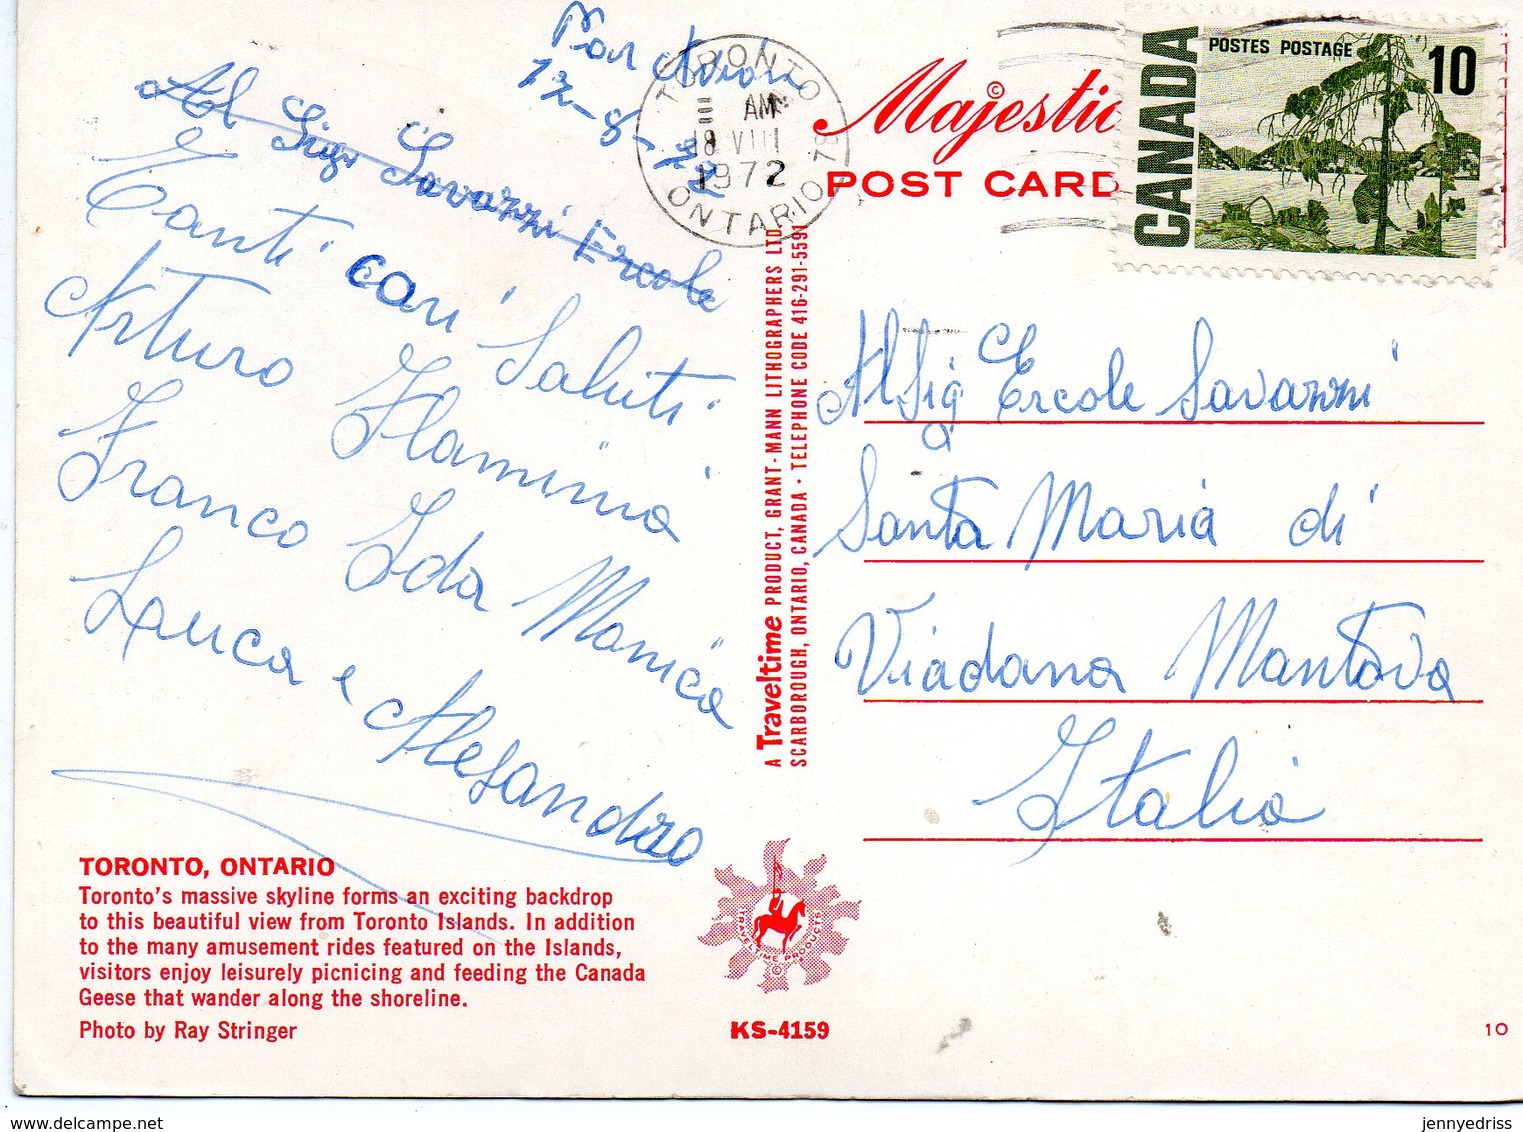 Par Avion
17-8-72
Al Sigr Savazzi Ercole
Tanti cari Saluti
Arturo Flaminia
Franco Ida Monica
Lauca e Alesandro
TORONTO, ONTARIO
Toronto's massive skyline forms an exciting backdrop
to this beautiful view from Toronto Islands. In addition
to the many amusement rides featured on the Islands,
visitors enjoy leisurely picnicing and feeding the Canada
Geese that wander along the shoreline.
Photo by Ray Stringer
TORONTO
AM
18 VIII
1972
ONTARIO
A Traveltime PRODUCT, GRANT-MANN LITHOGRAPHERS LTD.
SCARBOROUGH, ONTARIO, CANADA · TELEPHONE CODE 416-291-5591
TRAVELTIME PRODUCTS
©
KS-4159
Majestic
©
POST CARD
CANADA
POSTES POSTAGE
10
Al Sig Ercole Savazzi
Santa Maria di
Viadana Mantova
Italia
10
www.delcampe.net
jennyedriss